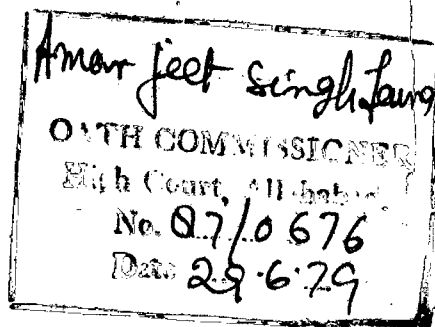 Amar jeet Singh
OATH COMMISSIONER
High Court, Allahabad
No. 87/0676
Date 29.6.79